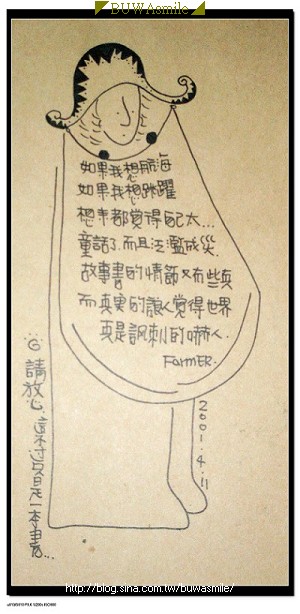 BUWAsmile
如果我想航海
如果我想跳躍
想來都覺得自己太...
童話了.而且泛濫成災.
故事書的情節又有些真
而真実的讓人覺得世界
真是諷刺的嚇人.
Farmer.
2001.4.11
請放心,這不过只是一本書...
http://blog.sina.com.tw/buwasmile/